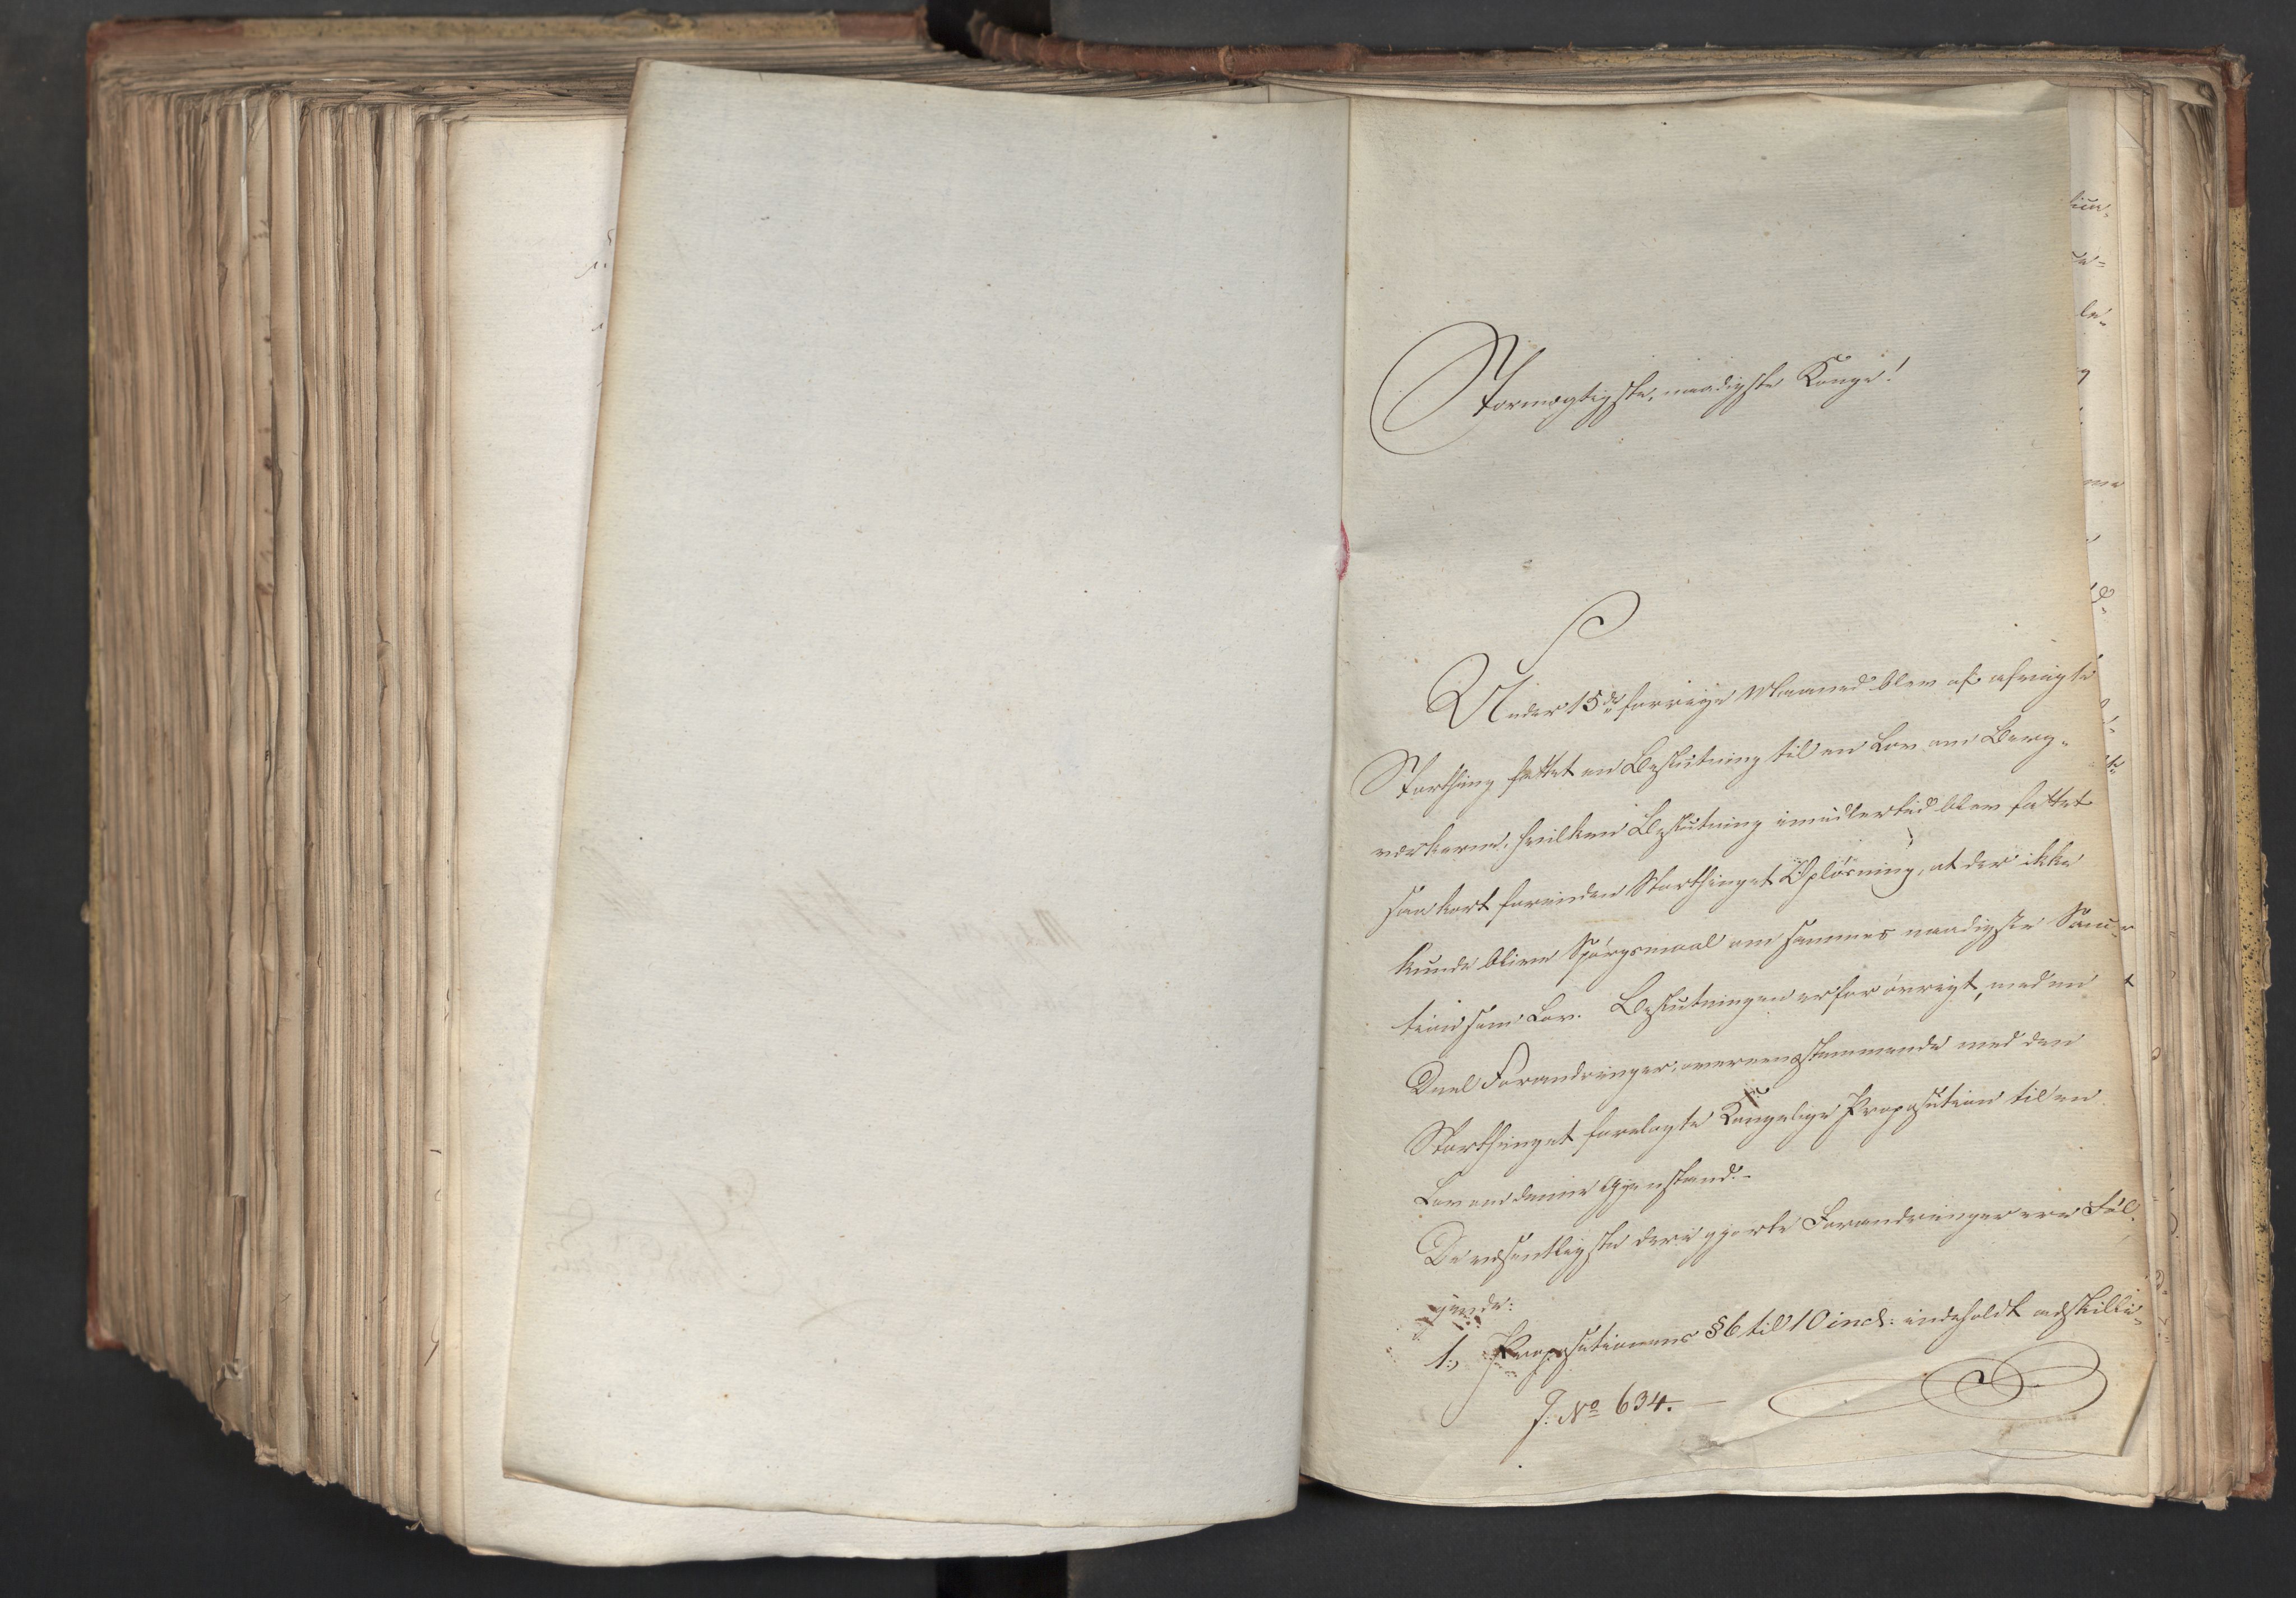 Stormægtigste, naadigste Konge!
Under 15de forrige Maaned blev af afvigte
Storthing fattet en Beslutning til en Lov om Berg-
værkerne, hvilken Beslutning imidlertid blev fattet
saa kort forinden Storthingets Opløsning, at der ikke
kunde blive Spørgsmaal om sammes naadigste Sanc-
tion som Lov. Beslutningen er for øvrigt, med en
Deel Forandringer, overeensstemmende med den
Storthinget forelagte Kongelige Proposition til en
Lov om denne Gjenstand.-
De væsentligste deri gjorte Forandringer ere Føl-
gende:
1., Propositionens § 6 til 10 incl: indeholdt adskilli-
J. No 634.